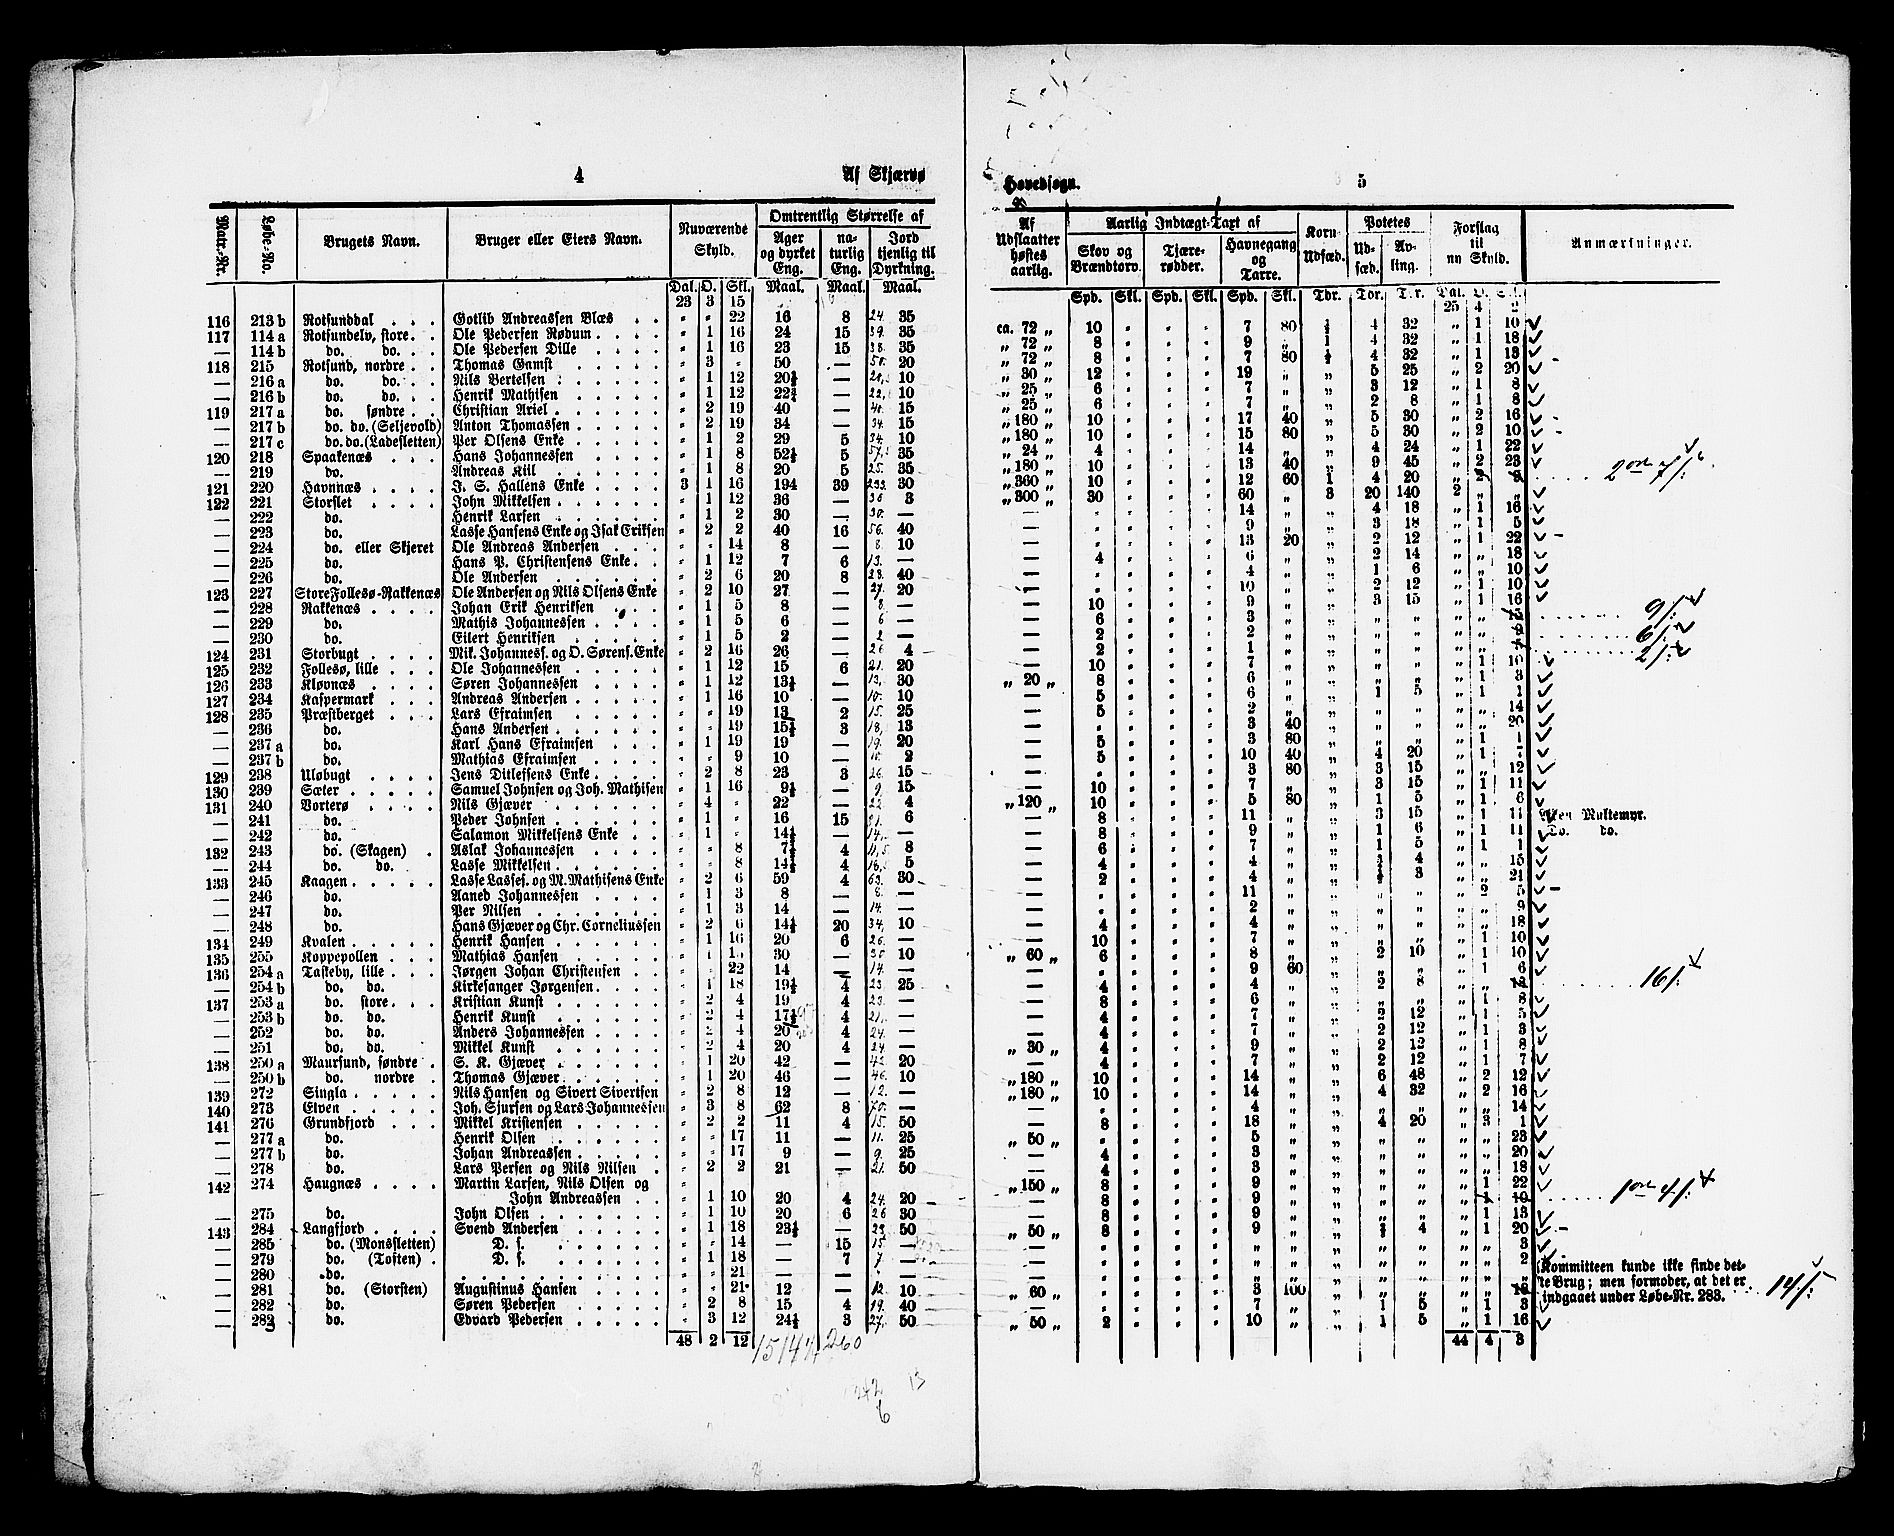 4
Af Skjærvø
Matr.-Nr.
Løbe-No.
Brugets Navn.
Bruger eller Eiers Navn.
Nuværende Skyld.
Omtrentlig Størrelse af
Ager og dyrket Eng.
naturlig Eng.
Jord tjenlig til Dyrkning.
Dal. O. Skl. Maal. Maal. Maal.
23 3 15
116 213 b Rotsunddal . . . Gotlib Andreassen Blæs . . " " 22 16 8 24. 35
117 114 a Rotsundelv, store . . Ole Pedersen Rødum . . . . " 1 16 24 15 39. 35
— 114 b do. do. . . Ole Pedersen Dille . . . . " 1 16 23 15 38. 35
118 215 Rotsund, nordre . . Thomas Gamst . . . . . " 3 " 50 — 50. 20
— 216 a do. do. . . Nils Bertelsen . . . . . " 1 12 20½ — 10
— 216 b do. do. . . Henrik Mathisen . . . . " 1 12 — 10
119 217 a do. søndre . . Christian Ariel . . . . . " 2 19 40 — 40. 15
— 217 b do. do. (Seljevold) Anton Thomassen . . . . " 2 19 34 — 34. 15
— 217 c do. do. (Ladesletten) Per Olsens Enke . . . . " 1 2 29 5 34. 10
120 218 Spaakenæs . . . Hans Johannessen . . . . " 1 8 52½ 5 35
— 219 do. Andreas Kiil . . . . . " 1 8 20 5 25. 35
121 220 Havnnæs . . . . J. S. Hallens Enke . . . . 3 1 16 194 39 233. 30
122 221 Storslet . . . . John Mikkelsen . . . . . " 1 12 36 — 36 3
— 222 do. Henrik Larsen . . . . . " 1 2 30 — 30. —
— 223 do. Lasse Hansens Enke og Isak Eriksen " 2 2 40 16 56. 40
— 224 do. eller Skjeret Ole Andreas Andersen . . . " " 14 8 — 8. 10
— 225 do. Hans P. Christensens Enke . . " 1 12 7 6 13. —
— 226 do. Ole Andersen . . . . . " 2 6 20 8 28. 40
123 227 Store Follesø-Rakkenæs Ole Andersen og Nils Olsens Enke " 2 10 27 — 27. 20
— 228 Rakkenæs . . . . Johan Erik Henriksen . . . " 1 5 8 — 8. —
— 229 do. Mathis Johannessen . . . . " 1 5 6 — 6 —
— 230 do. Eilert Henriksen . . . . . " 1 5 2 — 2 —
124 231 Storbugt . . . . Mik. Johanness. og O. Sørens. Enke " 2 16 26 — 26 4
125 232 Follesø, lille . . . Ole Johannessen . . . . " 1 12 15 6 21. 20
126 233 Kløvnæs . . . . Søren Johannessen . . . . " 1 12 13½ — 13. 30
127 234 Kaspermark . . . Andreas Andersen . . . . " 1 16 10 — 10. 10
128 235 Præstberget . . . Lars Efraimsen . . . . . " " 19 13 2 15. 25
— 236 do. Hans Andersen . . . . . " " 19 15½ 3 18. 13
— 237 a do. Karl Hans Efraimsen . . . " 1 19 19 — 19. 20
— 237 b do. Mathias Efraimsen . . . . " " 9 10 — 10. 2
129 238 Uløbugt . . . . Jens Ditlefsens Enke . . . . " 2 8 23 3 26. 15
130 239 Sæter . . . . . Samuel Johnsen og Joh. Mathisen " 1 16 9½ — 9. 15
131 240 Vorterø . . . . Nils Gjæver . . . . . " 4 " 22 — 22. 4
— 241 do. Peder Johnsen . . . . . " 1 " 16 15 31. 6
— 242 do. Salamon Mikkelsens Enke . . " 1 " 14½ — 14. —
132 243 do. (Skagen) . Aslak Johannessen . . . . " " 8 7½ 4 11,5 8
— 244 do. do. Lasse Mikkelsen . . . . . " " 8 14½ 4 18,5 5
133 245 Kaagen . . . . . Lasse Lasses. og M. Mathisens Enke " 2 6 59 4 63. 30
— 246 do. Aaned Johannessen . . . . " 1 3 8 — 8. —
— 247 do. Per Nilsen . . . . . . " 1 3 14 — 14. —
— 248 do. Hans Gjæver og Chr. Corneliussen " 2 6 14½ 20 34, 10
134 249 Kvalen . . . . . Henrik Hansen . . . . . " 1 16 20 6 26. —
135 255 Koppepollen . . . Mathias Hansen . . . . " 1 30 — 30 10
136 254 a Taskeby, lille . . . Jørgen Johan Christensen . . " " 22 14 — 14. —
— 254 b do. do. Kirkesanger Jørgensen . . . " 1 18 19½ 4 23 25
137 253 a do. store . . . Kristian Kunst . . . . . " 2 4 19 4 23. —
— 253 b do. do. Henrik Kunst . . . . . " 2 4 17½ 4 21. —
— 252 do. do. Anders Johannessen . . . . " 2 4 20 4 24. —
— 251 do. do. Mikkel Kunst . . . . . " 2 4 20 4 24. —
138 250 a Maursund, søndre . S. K. Gjæver . . . . . " 1 20 42 — 42 20
— 250 b do. nordre . Thomas Gjæver . . . . . " 1 20 46 — 46. 10
139 272 Singla . . . . . Nils Hansen og Sivert Sivertsen " 2 8 12 — 12. —
140 273 Elven . . . . . Joh. Sjursen og Lars Johannessen " 3 8 62 8 70. —
141 276 Grundfjord . . . Mikkel Kristensen . . . . " 2 2 11 4 15. 50
— 277 a do. Henrik Olsen . . . . . " " 17 11 — 11. 25
— 277 b do. Johan Andreassen . . . . " " 17 9 — 9. 25
— 278 do. Lars Persen og Nils Nilsen . " 2 2 21 — 21. 50
142 274 Haugnæs . . . . Martin Larsen, Nils Olsen og
John Andreassen . . " 1 10 20 4 24. 20
— 275 do. John Olsen . . . . . . " 1 10 20 6 26 30
143 284 Langfjord . . . . Svend Andersen . . . . . " 1 18 23½ — 23. 50
— 285 do. (Monsletten) D. s. . . . . . " " 14 — 15 15 —
— 279 do. (Tosten) . D. s. . . . . . " 1 18 — 7 7 —
— 280 do. . . . . . . " " 21 — — —
— 281 do. (Storsten) Augustinus Hansen . . . . " " 21 12 — 12 10
— 282 do. Søren Pedersen . . . . . " 2 8 15 4 19. 40
— 283 do. Edvard Pedersen . . . . . " 3 12 24½ 3 27. 50
48 2 12
1514½ 260
242 13
6
Hovedsogn.
5
Af Udslaatter høstes aarlig.
Aarlig Indtægt-Taxt af
Skov og Brændtorv.
Tjærerødder.
Havnegang og Tarre.
Korn Udsæd.
Potetes
Udsæd.
Avling.
Forslag til ny Skyld.
Anmærkninger.
Spd. Skl. Spd. Skl. Spd. Skl. Tdr. Tdr. Tdr. Dal. O. Skl.
25 4 2
ca. 72 " 10 " " " 7 80 4 32 " 1 10
" 72 " 8 " " " 9 " 4 32 " 1 18
" 72 " 8 " " " 7 80 4 32 " 1 13
" 30 " 12 " " " 19 " " 5 25 " 2 20
" 25 " 6 " " " 7 " " 3 12 " 1 8
" 25 " 6 " " " 7 " " 2 8 " 1 8
" 180 " 10 " " " 17 40 " 5 30 " 2 16
" 180 " 10 " " " 15 80 " 5 30 " 2 10
" 24 " 4 " " " 14 " " 4 24 " 1 22
" 180 " 10 " " " 13 40 " 9 45 " 2 23
" 360 " 10 " " " 12 60 1 4 20 " 2 5 2 ort 7/:
" 300 " 30 " " " 60 " 3 20 140 2 " "
— " " " " 14 " " 4 18 " 1 16
— " " " " 9 " " 3 18 " 1 5
— " " " " 13 20 " 2 12 " 1 22
— 4 " " " 6 " " 2 14 " " 18
— " " " " 4 " " 1 6 " " 10
— " " " " 10 " " 2 12 " 1 10
— 10 " " " 9 " " 3 15 " 1 16
— 6 " " " 3 " " " " " " 15 . . . . . 9/:
— 2 " " " 2 " " " " " " 9 . . . . . 6/:
— 2 " " " 1 " " " " " " 5 . . . . . 2/:
— 10 " " " 7 " " " " " 1 10
" 20 " 8 " " " 6 " " " " " 1 3
— 5 " " " 6 " " 1 5 " 1 1
— 5 " " " 2 " " " " " " 14
— " " " " 3 40 " " " " " 20
— 5 " " " 3 80 " " " " 1 1
— 5 " " " 10 40 " 4 20 " 1 7
— " " " " 3 80 " 3 15 " " 12
— 10 " " " 7 " " 3 15 " 1 11
" 120 " 10 " " " 5 80 " 1 5 " 1 6
— 8 " " " 11 " " 3 15 " 1 11 Multemyr.
— 8 " " " 9 " " 1 6 " 1 11 Do. do.
— 6 " " " 7 " " 1 5 " 1 1
— 4 " " " 4 " " 4 " " 15
— 2 " " " 4 " " 3 " " 21
— " " " " 11 " " " " " 2 5
— " " " " 2 " " " " " " 9
— 4 " " " 4 " " " " " " 18
— 10 " " " 7 " " " " " 1 10
" 60 " 6 " " " 8 " " 2 10 " 1 10
— " " " " 9 60 " " " " 1 6
— 4 " " " 4 " " 2 8 " " 13 . . . . . 16/:
— 8 " " " 6 " " " " " 1 8
— 4 " " " 7 " " 2 12 " 1 5
— 4 " " " 7 " " 2 12 " 1 3
" 30 " 4 " " " 9 " " 2 12 " 1 8
— 4 " " " 7 " " 2 12 " 1 7
" 180 " 10 " " " 14 " " 6 48 " 2 12
" 180 " 10 " " " 14 " " 4 32 " 2 16
— " " " " 4 " " " " " " 14
— 8 " " " 18 " " 4 20 " 3 1
" 50 " " " " " 5 " " " " " " 23
— 4 " " " 3 " " " " " " 20
— 4 " " " 3 " " " " " " 18
" 150 " 8 " " " 9 " " " " " 1 22
— 8 " " " 9 " " " " " 1 19 . . . . . 1 ort 4/:
— 8 " " " 9 " " " " " 1 13
" 50 " 8 " " " 9 " " 4 " 1 20
— " " " " " " " " " " " 3
— " " " " " " " " " " " 2
— " " " " " " " " " " " " (Kommitteen kunde ikke finde dette Brug; men formoder, at det er
" 60 " " " " " 3 100 " " " " " 18 indgaaet under Løbe-Nr. 283. . . 14/:
— " " " " 7 " " 1 5 " 1 3
" 50 " 2 " " " 10 " " 1 5 " 1 16
44 4 3